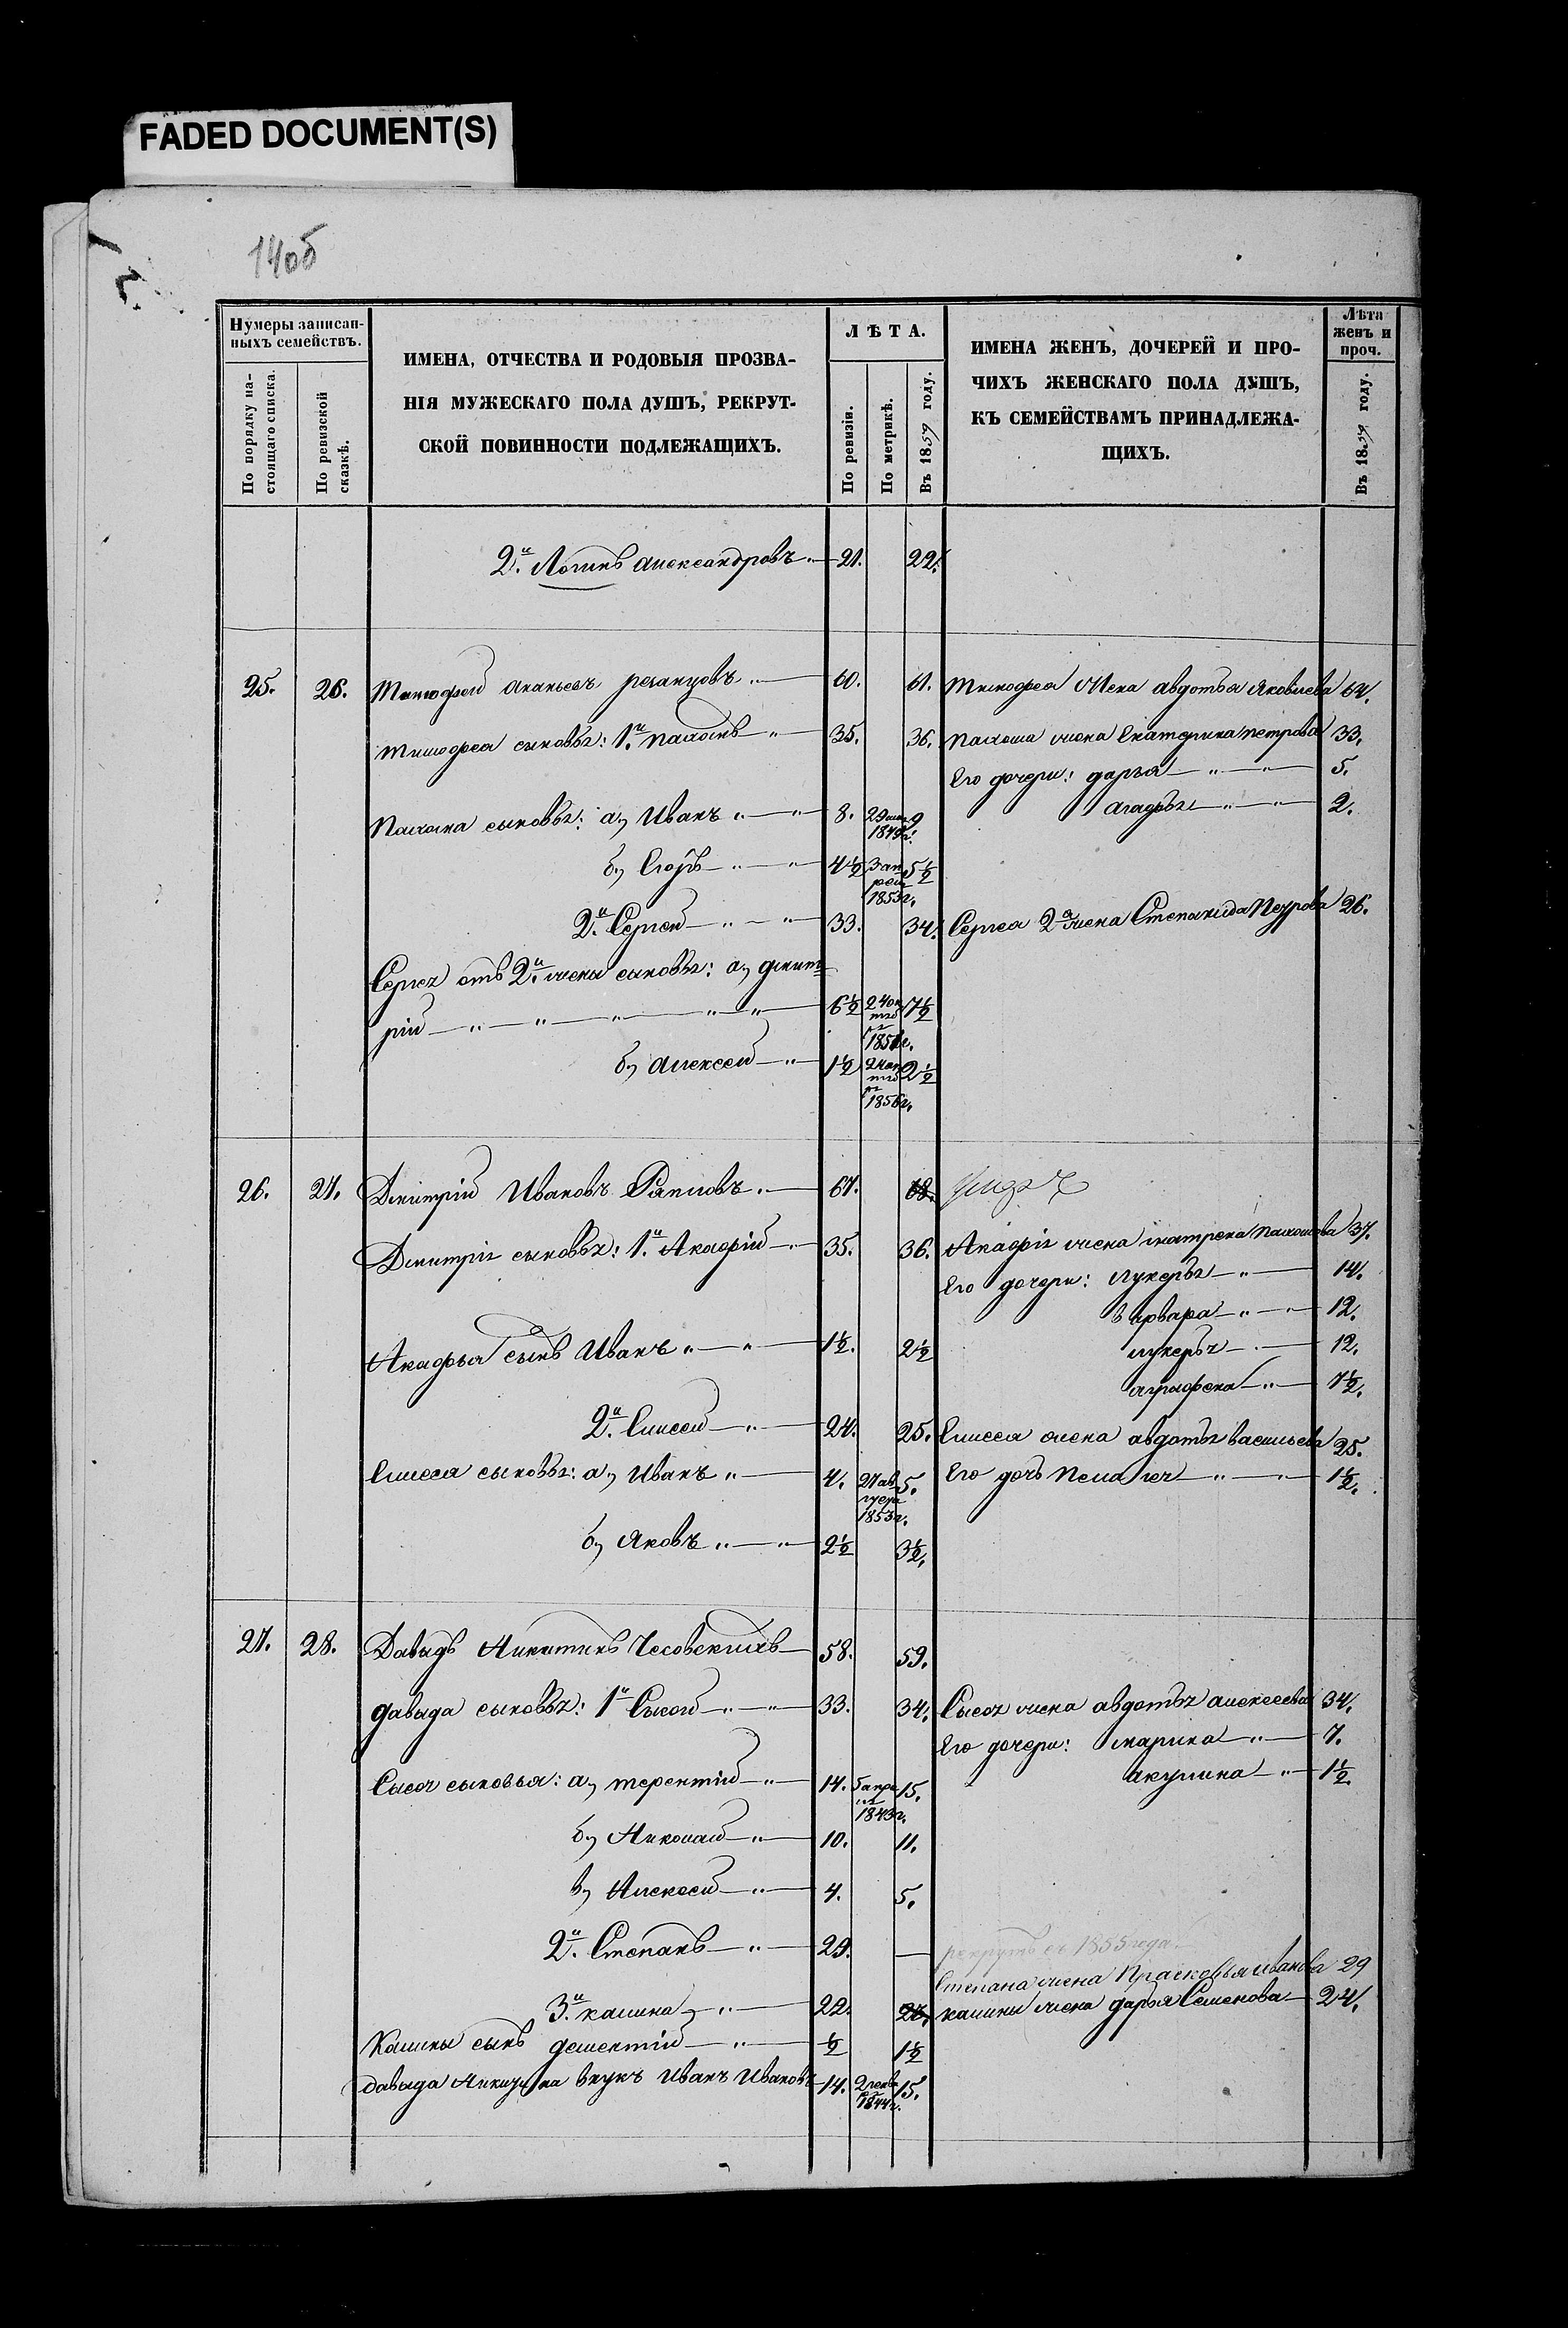 FADED DOCUMENT(S)
14об
Нумеры записан-
ныхъ семействъ.
По порядку на-
стоящаго списка.
По ревизской
сказкѣ.
ИМЕНА, ОТЧЕСТВА И РОДОВЫЯ ПРОЗВА-
НІЯ МУЖЕСКАГО ПОЛА ДУШЪ, РЕКРУТ-
СКОЙ ПОВИННОСТИ ПОДЛЕЖАЩИХЪ.
ЛѢТА.
По ревизіи.
По метрикѣ.
Въ 1859 году.
ИМЕНА ЖЕНЪ, ДОЧЕРЕЙ И ПРО-
ЧИХЪ ЖЕНСКАГО ПОЛА ДУШЪ,
КЪ СЕМЕЙСТВАМЪ ПРИНАДЛЕЖА-
ЩИХЪ.
Лѣта
женъ и
проч.
Въ 1859 году.
2й Логинъ александровъ 21. 22.
25. 26. Тимофей ананьевъ 60. 61. Тимофея жена авдотья Яковлева 64.
тимофея сыновья: 1й пахомъ 35. 36. пахома жена Екатерина петрова 33.
Его дочери: дарья 5.
Пахома сыновья: а, Иванъ 8. 9 агафья 2.
б, Егоръ 4½ 3 апреля 1853г. 5½
2й Сергей 33. 34. Сергея 2я жена Степанида Петрова 26.
Сергея отъ 2й жены сыновья: а, дмит
рій 6½ 24 октября 1851г. 7½
б, алексей 1½ 24 октября 1856г. 2½
26. 27. Дмитрій Ивановъ 67. 68.
Дмитрія сыновья: 1й Акафій 35. 36. Акафія жена пахомова 37.
Его дочери: лукерья 14.
варвара 12.
Акафья сынъ Иванъ 1½. 2½ лукерья 12.
аграфена 7½.
2й Елисей 24. 25. Елисея жена авдотья васильева 25.
Елисея сыновья: а, Иванъ 4. 27 августа 1853г. 5. Его дочь Пелагея 1½.
б, Яковъ 2½ 3½.
27. 28. Давыдъ Никитинъ Чесовскихъ 58. 59.
давыда сыновья: 1й Сысой 33. 34. Сысоя жена авдотья алексеева 34.
Его дочери: марина 7.
Сысоя сыновья: а, терентій 14. 5 апреля 1843г. 15. акулина 1½.
б, Николай 10. 11.
в, Алексей 4. 5.
2й Степанъ 29. — рекрутъ съ 1855 года.
Степана жена Прасковья иванова 29
3й калина 22. калины жена дарья Семенова 24.
Калины сынъ дементій ½ 1½
давыда Никитина внукъ Иванъ Ивановъ 14. 1844г. 15.